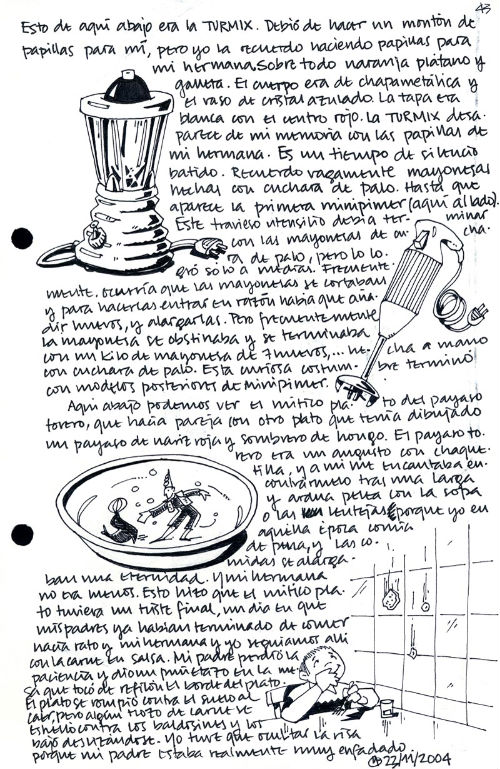 43
Esto de aquí abajo era la TURMIX. Debió de hacer un montón de
papillas para mí, pero yo la recuerdo haciendo papillas para
mi hermana. Sobre todo naranja plátano y
galleta. El cuerpo era de chapa metálica y
el vaso de cristal azulado. La tapa era
blanca con el centro rojo. La TURMIX desa-
parece de mi memoria con las papillas de
mi hermana. Es un tiempo de silencio
batido. Recuerdo vagamente mayonesas
hechas con cuchara de palo. Hasta que
aparece la primera minipimer (aquí al lado).
Este travieso utensilio debía ter- minar
con las mayonesas de cu cha-
ra de palo, pero lo lo-
gró sólo a medias. Frecuente-
mente, ocurría que las mayonesas se cortaban
y para hacerlas entrar en razón había que aña-
dir huevos, y alargarlas. Pero frecuentemente
la mayonesa se obstinaba y se terminaba
con un kilo de mayonesa de 7 huevos,... he- cha a mano
con cuchara de palo. Esta curiosa costum- bre terminó
con modelos posteriores de minipimer.
Aquí abajo podemos ver el mítico pla- to del payaso
torero, que hacía pareja con otro plato que tenía dibujado
un payaso de nariz roja y sombrero de hongo. El payaso to-
rero era un augusto con chaque-
tilla, y a mí me encantaba en-
contrármelo tras una larga
y ardua pelea con la sopa
o las lentejas porque yo en
aquella época comía
de pena, y las co-
midas se alarga-
ban una eternidad. Y mi hermana
no era menos. Esto hizo que el mítico pla-
to tuviera un triste final, un día en que
mis padres ya habían terminado de comer
hacía rato y mi hermana y yo seguíamos allí
con la carne en salsa. Mi padre perdió la
paciencia y dio un puñetazo en la me-
sa que tocó de refilón el borde del plato.
El plato se rompió contra el suelo al
caer, pero algún trozo de carne se
estrelló contra los baldosines y los
bajó deslizándose. Yo tuve que ocultar la risa
porque mi padre estaba realmente muy enfadado
22/11/2004